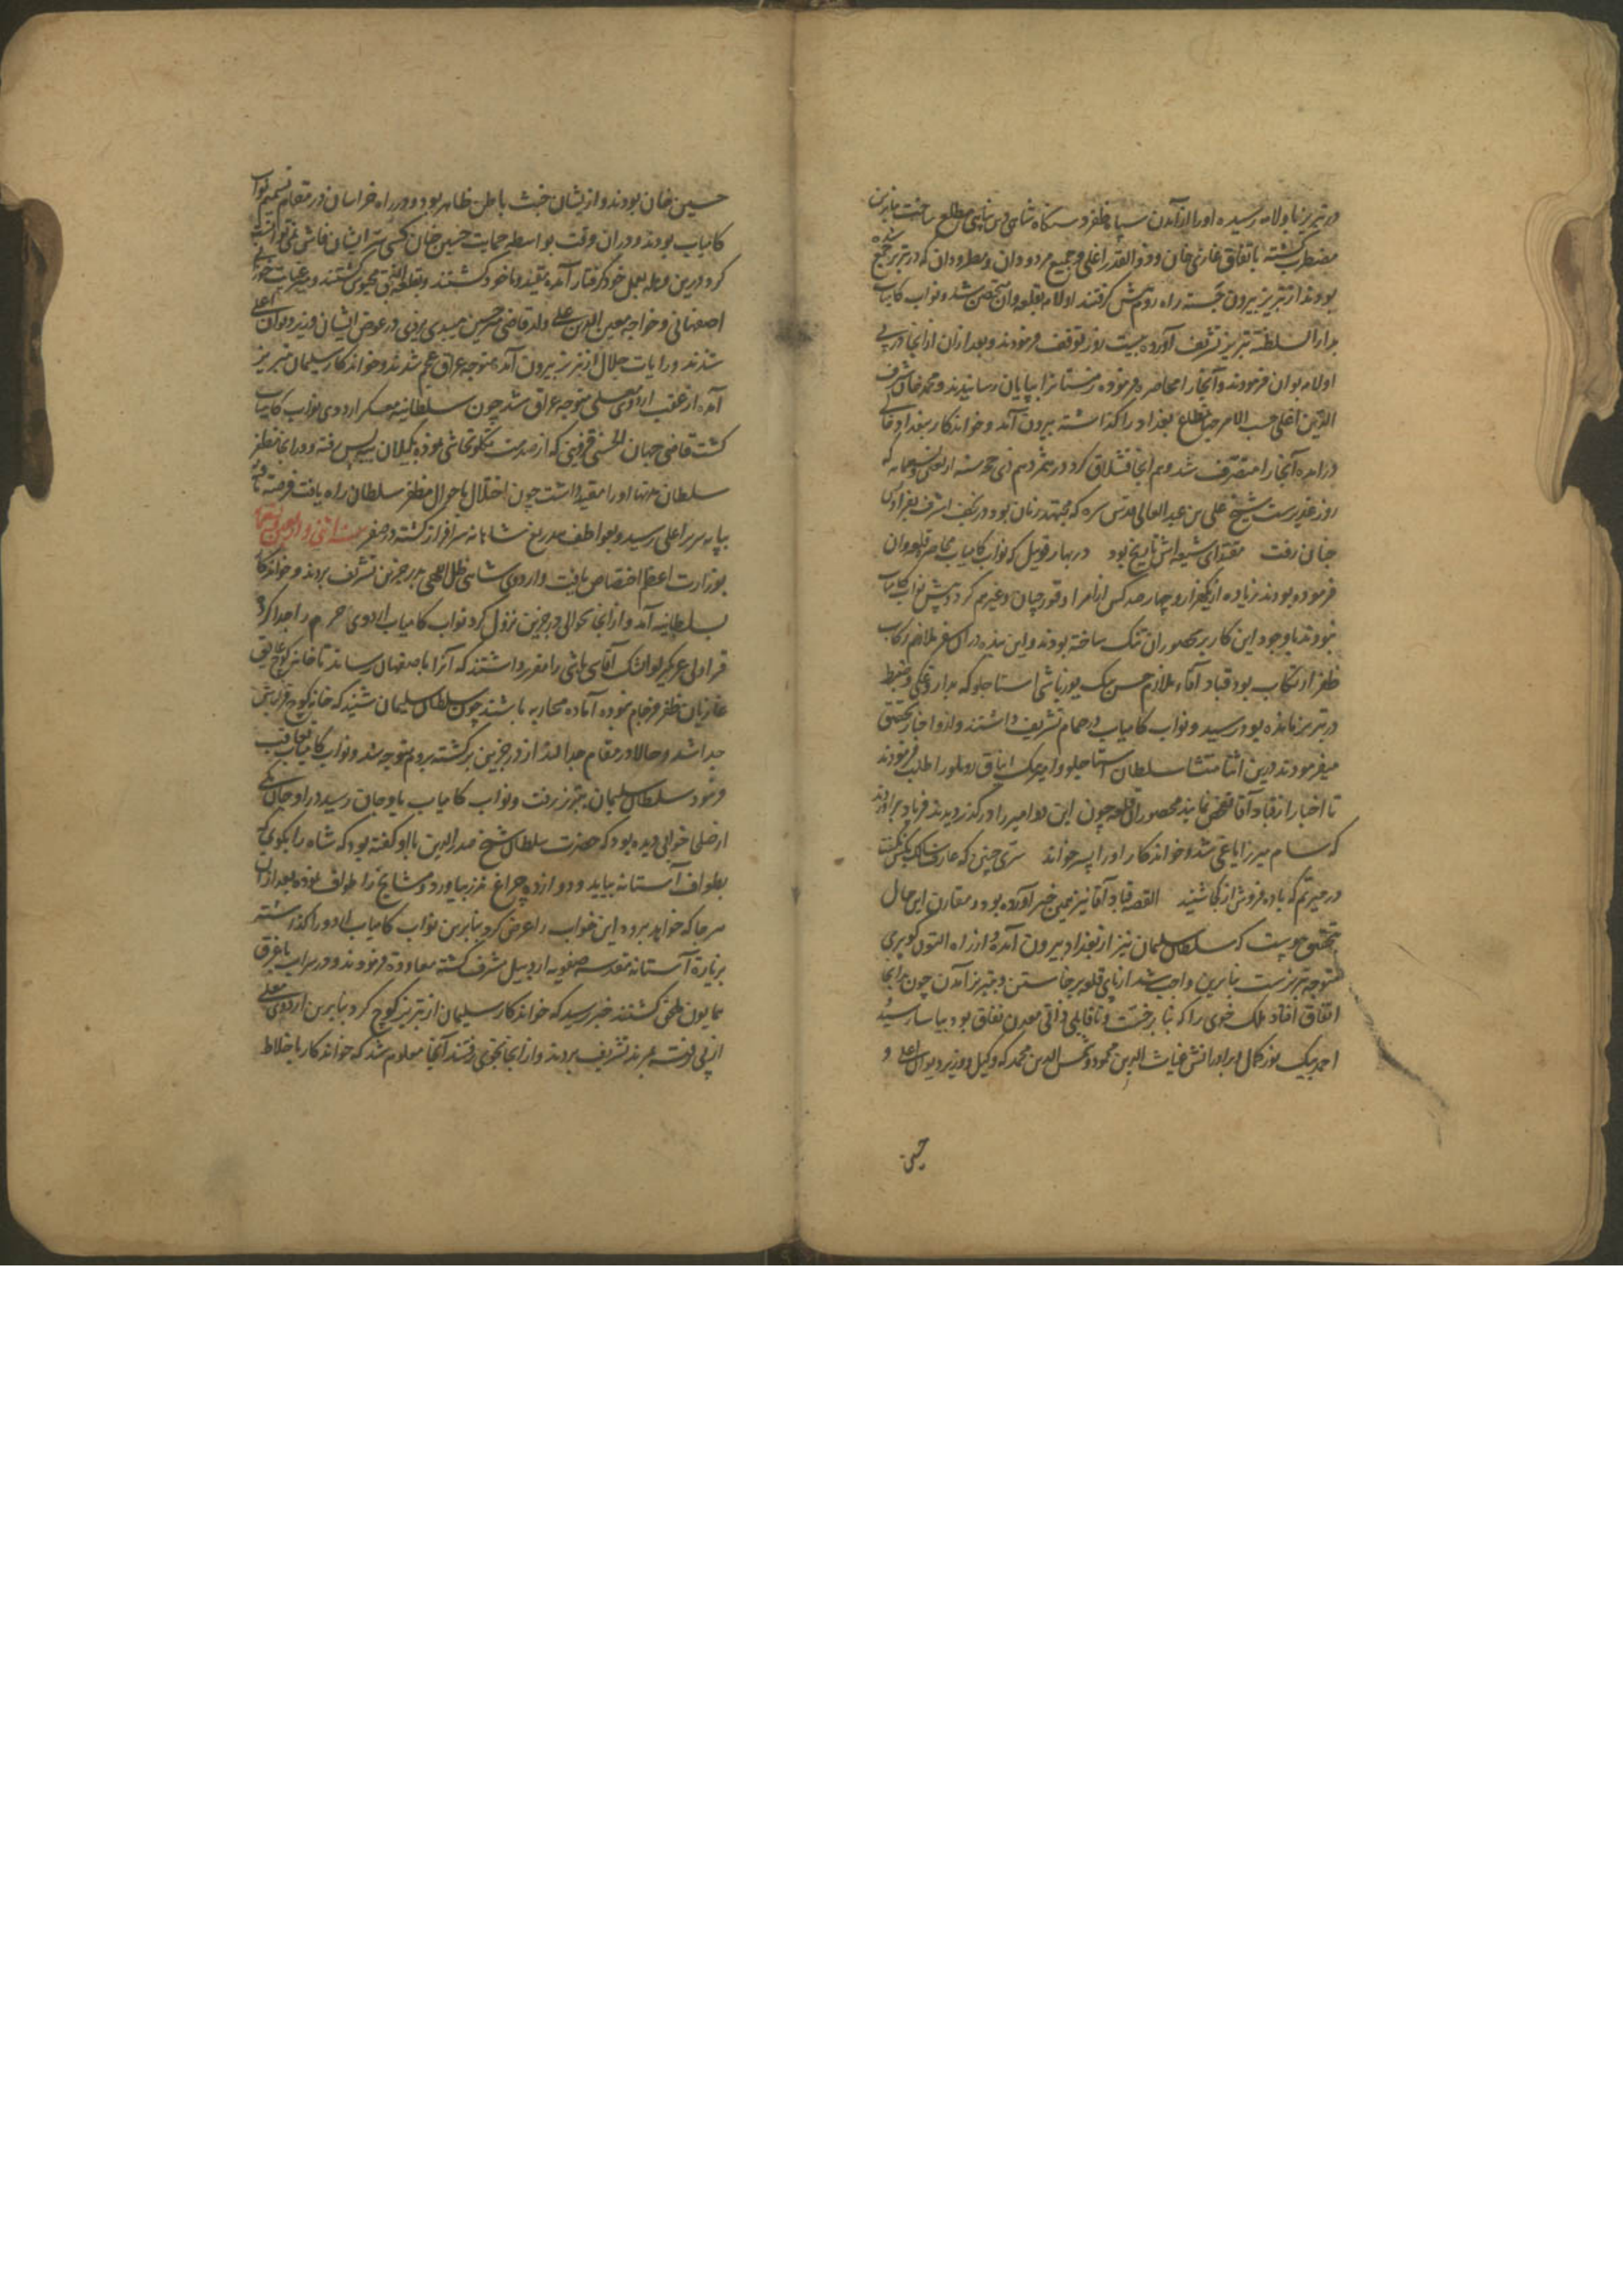 در تبریز باولامه رسیده او را از آمدن سپاه ظفر دستگاه شاهی دین پناهی مطلع ساخت بنابرین
مضطرب گشته باتفاق غازی خان ذو القدر اغلی و جمیع مردودان و مطرودان که در تبریز جمع شده
بودند از تبریز بیرون جسته راه روم پیش گرفتند اولامه بقلعه وان متحصن شد و نواب کامیاب
بدار السلطنة تبریز تشریف آورده بیست روز توقف فرمودند و بعد ازان از انجا در پی
اولامه بوان فرمودند و آنجا را محاصره فرموده زمستانرا بپایان رسانیدند و محمد خان شرف
الدین اغلی حسب الامر جهانمطاع بغداد را گذاشته بیرون آمد و خواندکار ببغداد
درآمده آنجا را متصرف شد و هم آنجا قشلاق کرد و در هژدهم ذی حجه سنه اربعین و تسعمایه که
روز غدیرست شیخ علی بن عبد العالی قدس سره که مجتهد زمان بود در نجف اشرف بفرادیس
جنان رفت مقتدای شیعه اش تاریخ بود در بهار قویئیل که نواب کامیاب محاصره قلعه وان
فرموده بودند زیاده از یکهزار و چهار صد کس از امرا و قورچیان و غیرهم کرد و پیش نواب کامیاب
نبودند با وجود این کار بر محصوران تنک ساخته بودند و این بنده در آن سفر ملازم رکاب
ظفر ارتکاب بود قباد آقاء ملازم حسن بیک یوزباشی استاجلو که بداروغکی و ضبط
در تبریز مانده بود رسید و نواب کامیاب در حمام تشریف داشتند و ازو اخبار تحقیق
میفرمودند درین اثنا منتشا سلطان استاجلو و امیر بیک ایناق روملو را طلب فرمودند
تا اخبار از قباد آقا تفحص نمایند محصوران قلعه چون این دو امیر را در گذر دیدند فریاد برآوردند
که سام میرزا یاغی شد و خواندکار او را پسر خواند سری چنین که عارف سالک بکس نگفت
در حیرتم که باده فروش از کجا شنید القصه قباد آقا نیز همین خبر آورده بود و مقارن این حال
بتحقیق پیوست که سلطان سلیمان نیز از بغداد بیرون آمده و از راه التون کوپری
متوجه تبریز ست بنابرین واجب شد از پای قلعه برخاستن و بتبریز آمدن چون برانجا
اتفاق افتاد ملک خوی را که بنا بر خبث و ناقابلی ذاتی معدن نفاق بود بیاسا رسید
احمد بیک نور کمال و برادرانش غیاث الدین محمود و شمس الدین محمد که وکیل و وزیر دیوان اعلی و
حسین
حسین خان بودند و از یشان خبث باطن ظاهر بود و در راه خراسان در مقام تسمیم نواب
کامیاب بودند و در ان وقت بواسطه حمایت حسین خان کسی سر ایشان فاش نمی توانست
کرد درین وهله بعمل خود گرفتار آمده مقید و ماخوذ گشتند و بقلعه النجق محبوس گشتند و میر عنایت خوزانی
اصفهانی و خواجه معین الدین علی ولد قاضی میر حسین میبدی یزدی در عوض ایشان وزیر دیوان اعلی
شدند و رایات جلال از تبریز بیرون آمده متوجه عراق عجم شدند و خواندکار سلیمان بتبریز
آمده از عقب اردوی معلی متوجه عراق شد چون سلطانیه معسکر اردوی نواب کامیاب
گشت قاضی جهان الحسنی قزوینی که از مدت بگیلان بیه پس رفته و در انجا مظفر
سلطان مدتها او را مقید داشت چون اختلال باحوال مظفر سلطان راه یافت فرصت یافته
بپایه سریر اعلی رسید و بعواطف بیدریغ شاهانه سرافراز گشته در صفر سنه اثنی و اربعین و تسعمایه
بوزارت اعظم اختصاص یافت و اردوی شاهی ظل اللهی بدرجزین تشریف بردند و خواندکار
بسلطانیه آمد و از انجا بحوالی درجزین نزول کرد نواب کامیاب اردوی حرم را جدا کرده
قراولی عربکرلو ایشک آقاسی باشی را مقرر داشتند که آنرا باصفهان رساند تا خانه کوچ علایق
غازیان ظفر فرجام نموده آماده محاربه باشند چون سلطان سلیمان شنید که خانه کوچ قزلباش
جدا شد و حالا در مقام جدالند از درجزین برگشته بروم متوجه شد و نواب کامیاب تعاقب
فرمود سلطان سلیمان بتبریز رفت و نواب کامیاب باوجان رسید در اوجان یکی
از صلحا خوابی دیده بود که حضرت سلطان شیخ صدر الدین بااو گفته بود که شاه را بگوی که
بطواف آستانه بیاید و دوازده چراغ نذر بیاورد و مشایخ را طواف نموده بعد ازان
هرجا که خواهد برود این خواب را عرض کرد بنابرین نواب کامیاب اردو را گذاشته
بزیارة آستانه مقدسه صفویه اردبیل مشرف گشته معاودة فرمودند و در سراب باغرق
همایون ملحق گشتند خبر رسید که خواندکار سلیمان از تبریز کوچ کرد بنابرین اردوی معلی
از پی رفته بمرند تشریف بردند و از انجا بخوی رفتند آنجا معلوم شد که خواندکار باخلاط